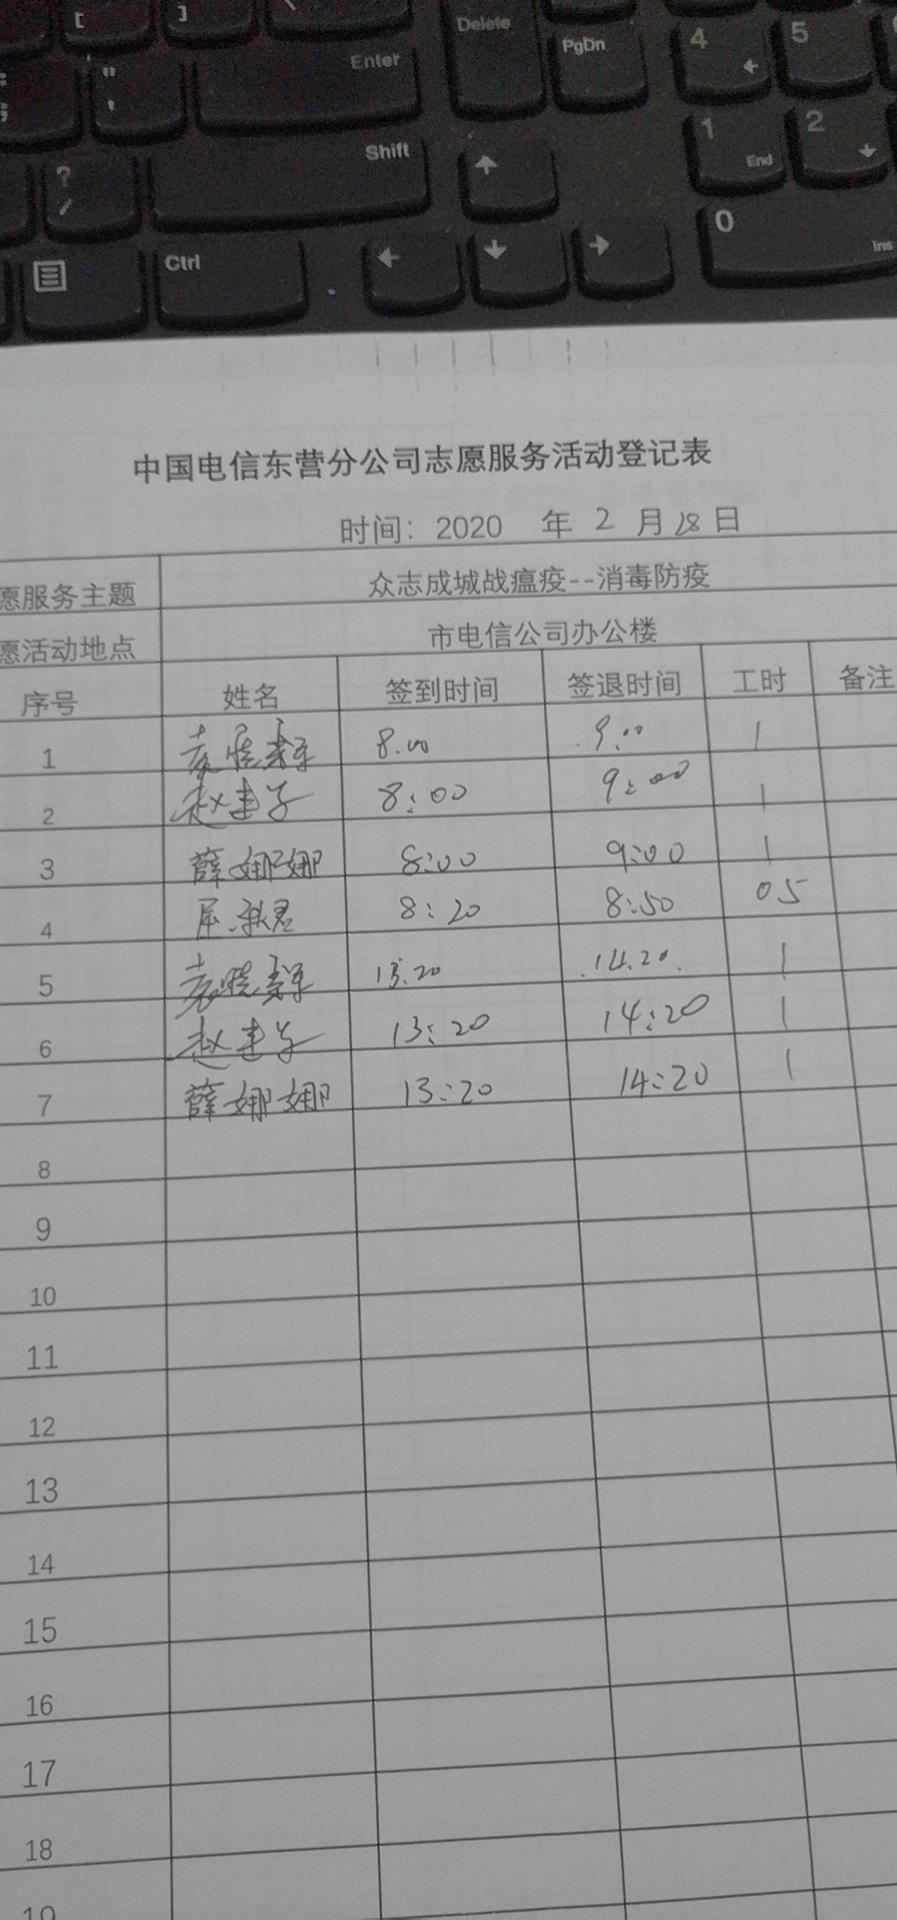 [ ] \
Delete
PgDn
4 5
: ; " ' Enter
1 End 2
? / Shift
Ctrl
0 Ins
中国电信东营分公司志愿服务活动登记表
时间：2020 年 2 月 28 日
愿服务主题 众志成城战瘟疫--消毒防疫
愿活动地点 市电信公司办公楼
序号 姓名 签到时间 签退时间 工时 备注
1 8.00 9:00 1
2 赵建 8:00 9:00 1
3 薛娜娜 8:00 9:00 1
4 8:20 8:50 05
5 13:20 14.20. 1
6 赵建 13:20 14:20 1
7 薛娜娜 13:20 14:20 1
8
9
10
11
12
13
14
15
16
17
18
19